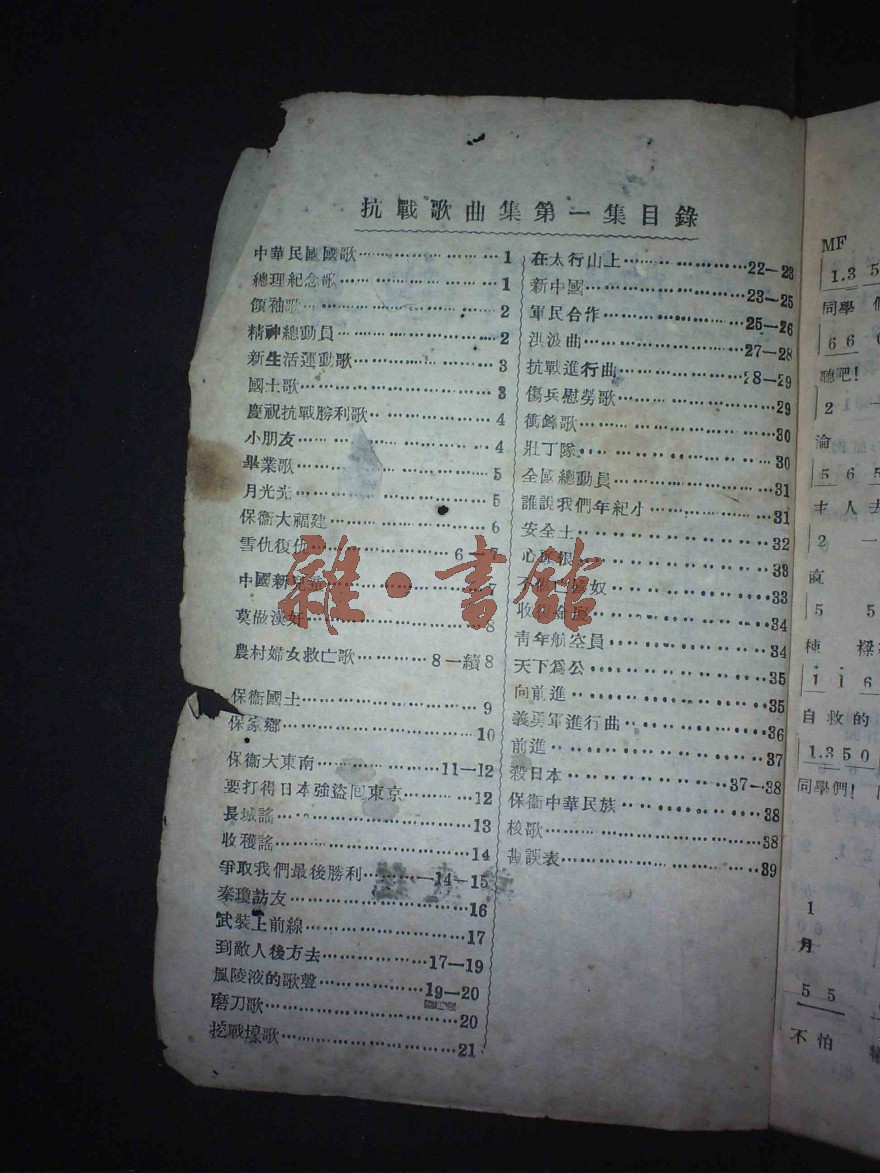 抗戰歌曲集第一集目錄
中華民國國歌……………………1
總理紀念歌……………………1
領袖歌……………………2
精神總動員……………………2
新生活運動歌……………………3
國土歌……………………3
慶祝抗戰勝利歌……………………4
小朋友……………………4
畢業歌……………………5
月光光……………………5
保衞大福建……………………6
雪仇復仇……………………6—7
中國新兒童……………………7
莫做漢奸……………………8
農村婦女救亡歌……………………8—續8
保衞國土……………………9
保家鄉……………………10
保衞大東南……………………11—12
要打得日本強盜回東京……………………12
長城謠……………………13
收穫謠……………………14
爭取我們最後勝利……………………14—15
秦瓊訪友……………………16
武裝上前線……………………17
到敵人後方去……………………17—19
風陵液的歌聲……………………19—20
磨刀歌……………………20
挖戰壕歌……………………21
在太行山上……………………22—23
新中國……………………23—25
軍民合作……………………25—26
洪波曲……………………27—28
抗戰進行曲……………………28—29
傷兵慰勞歌……………………29
衝鋒歌……………………30
壯丁隊……………………30
全國總動員……………………31
誰說我們年紀小……………………31
安全土……………………32
心 恨……………………33
不做亡國奴……………………33
收復 ……………………34
靑年航空員……………………34
天下爲公……………………35
向前進……………………35
義勇軍進行曲……………………36
前進……………………37
殺日本……………………37—38
保衞中華民族……………………38
校歌……………………38
勘誤表……………………39
雜·書館
MF
1.3 5
同學
6 6 0
聽吧!
2 一
淪
5 6 5
主人去
2 一
5 5
棟 樑
1 1 6
自救的
1.3 5 0
同學們!
1
月
5 5
不怕